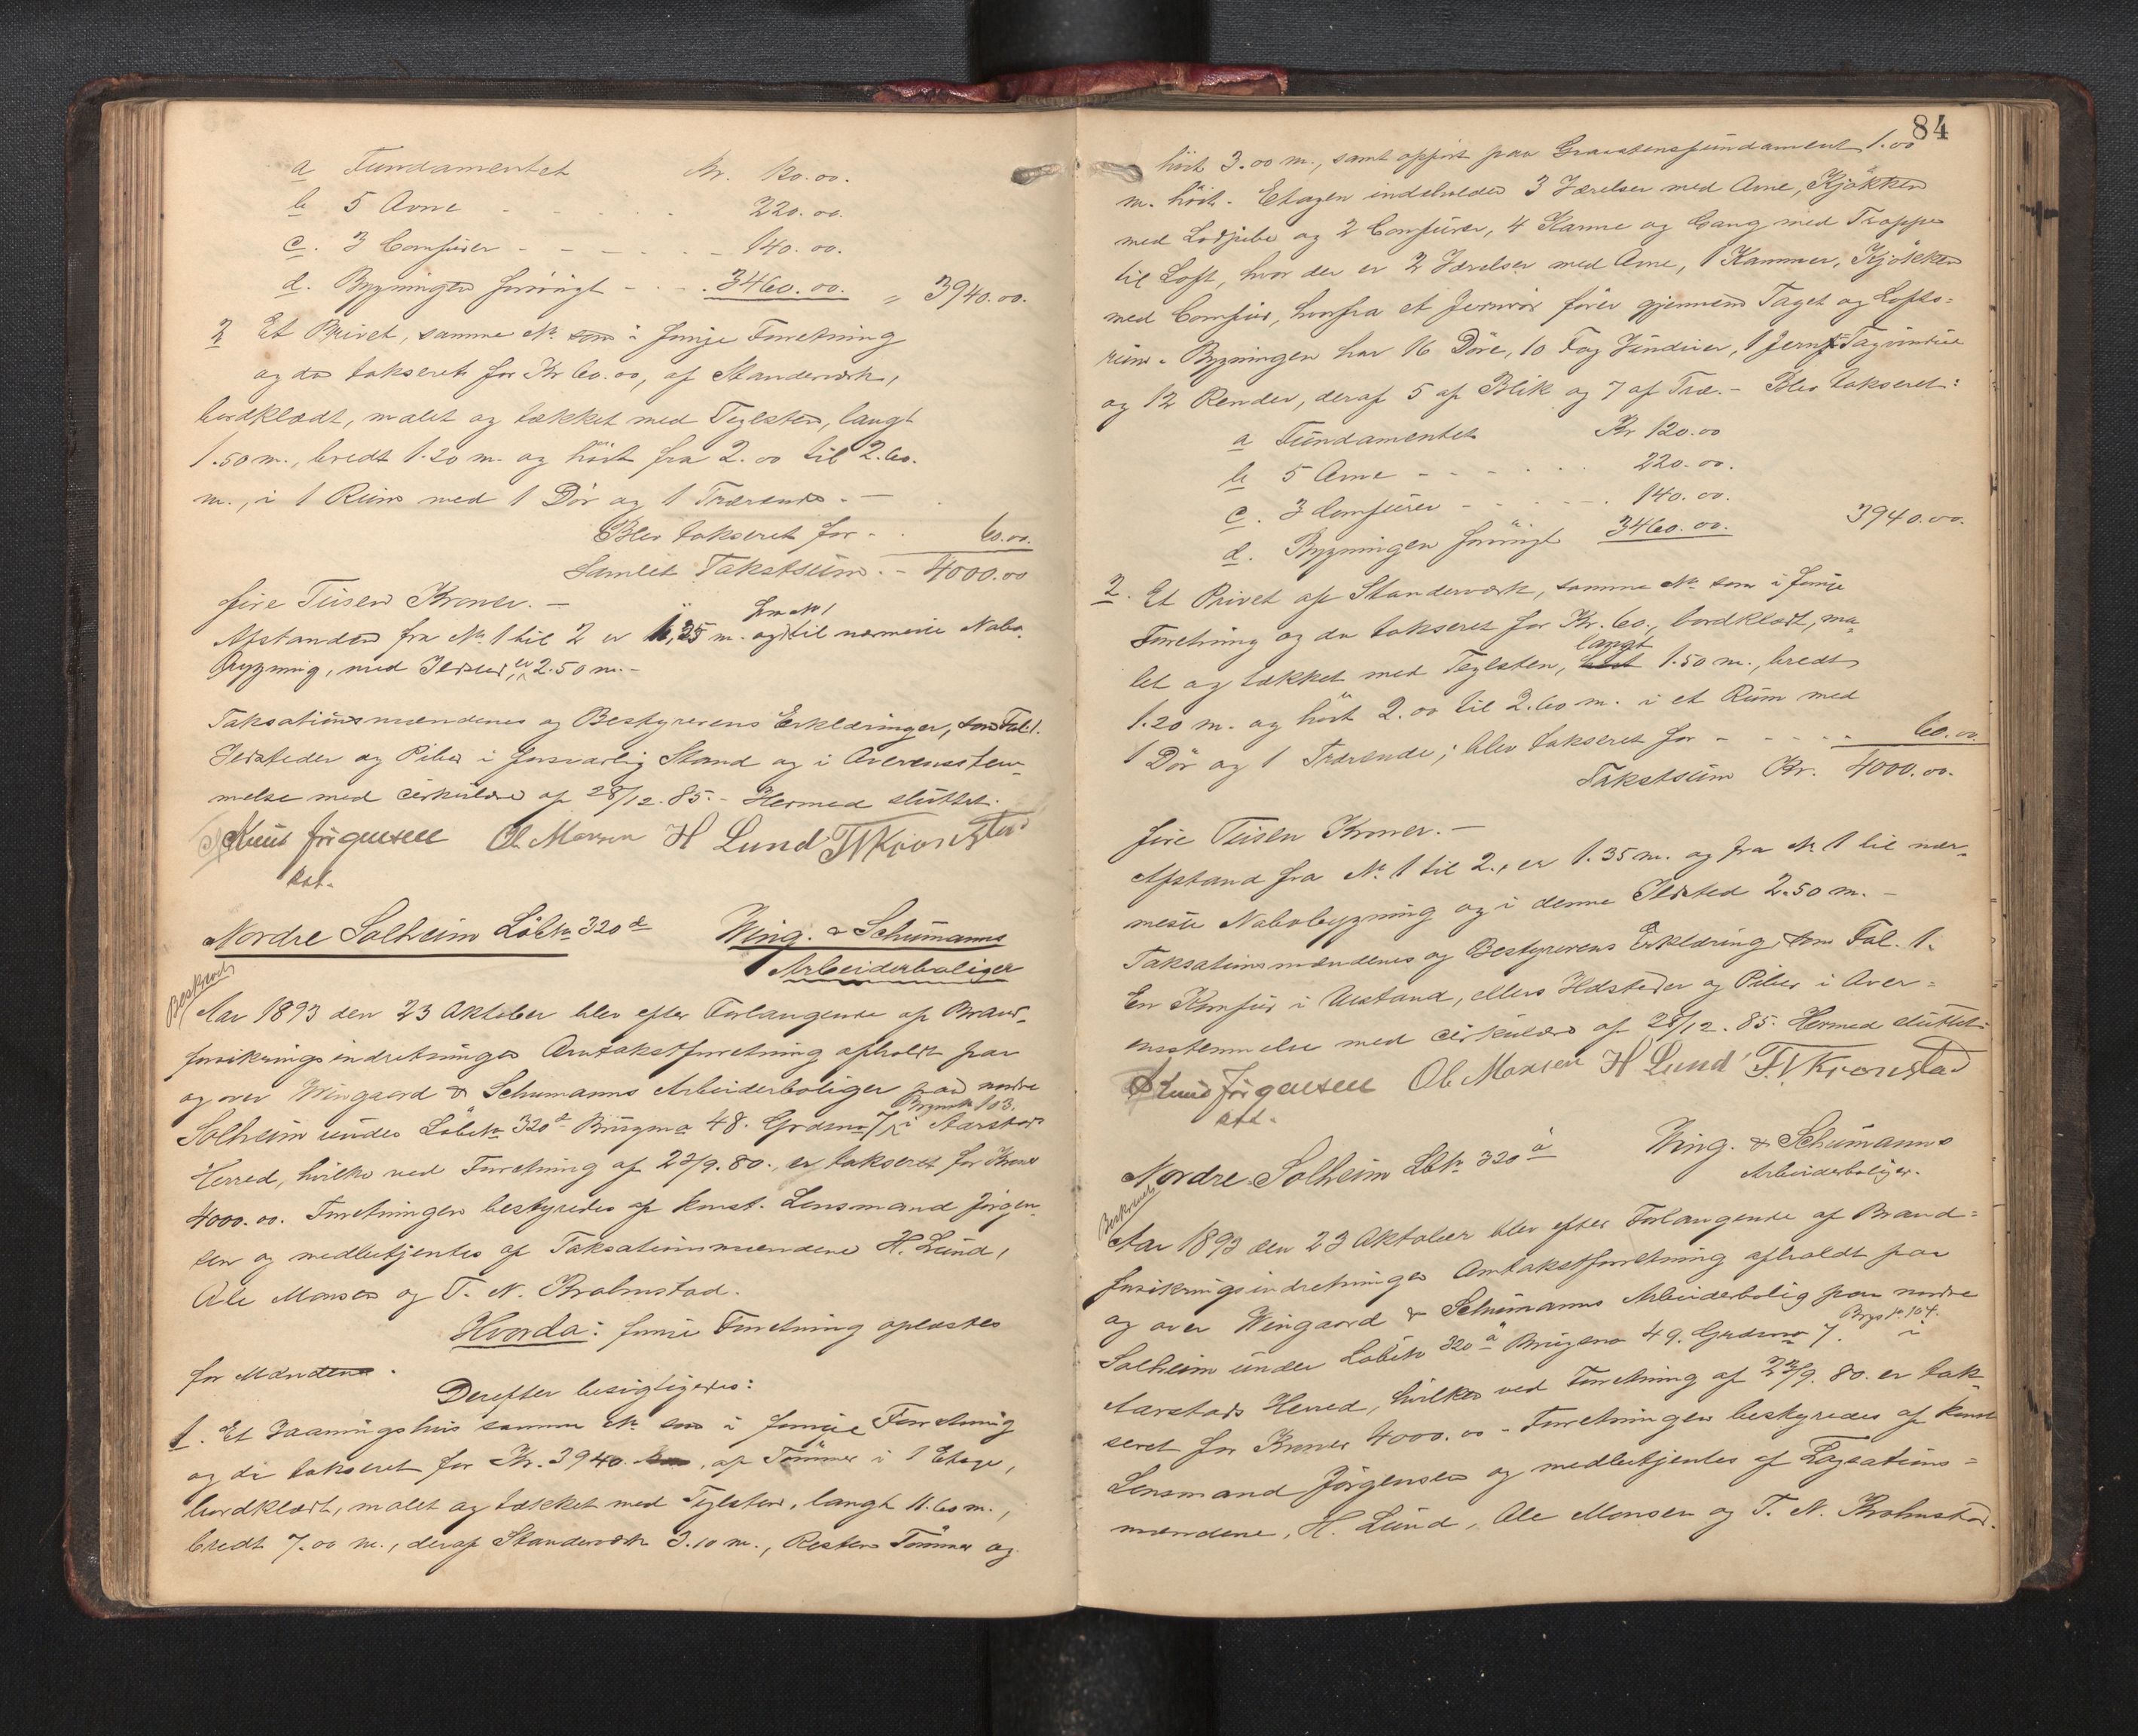 a Fundamentet Kr. 120.00.
b 5 Arne - - - - - 220.00.
c. 3 Comfurer - - - - - 140.00.
d. Bygningen forövrigt - - - 3460.00. " 3940.00.
2 Et Privet, samme No. som i forrige Forretning
og da takseret for Kr 60.00, af Standerværk,
bordklædt, malet og tækket med Teglsten, langt
1.50 m., bredt 1.20 m. og höit fra 2.00 til 2.60.
m., i 1 Rum med 1 Dör og 1 Trærende. -
Blev takseret for - . 60.00.
Samlet Takstsum. - 4000.00
fire Tusen Kroner. -
fra No 1
Afstanden fra No. 1 til 2 er 1,35 m. og til nærmeste Nabo-
bygning, med Ildsted, er 2.50 m. -
Taksationsmændenes og Bestyrerens Erklæringer, som Fol. 1.
Ildsteder og Piber i forsvarlig Stand og i Overensstem-
melse med cirkulære af 28/12. 85. - Hermed sluttet.
Knud Jörgensen Ol Monsen H Lund T N Kronstad
kst.
Nordre Solheim Löbno 320d Wing. & Schumanns
Arbeiderboliger
Beskrevet
Aar 1893 den 23 Oktober blev efter Forlangende af Brand-
forsikringsindretningen Omtakstforretning afholdt paa
og over Wingaard & Schumanns Arbeiderboliger paa nordre
Bygno 103.
Solheim under Löbno 320d Brugsno 48. Grdsno 7 i Aarstad
Herred, hvilke ved Forretning af 22/9. 80., er takseret for Kroner
4000.00. Forretningen bestyredes af konst. Lensmand Jörgen-
sen og medbetjentes af Taksationsmændene H. Lund,
Ole Monsen og T. N. Krohnstad.
Hvorda: forrige Forretning oplæstes
for Mændene.
Derefter besigtigedes:
1. Et Vaaningshus samme No. som i forrige Forretning
og da takseret for Kr. 3940. af Tömmer i 1 Etage,
bordklædt, malet og tækket med Teglsten, langt 11.60 m.,
bredt 7.00 m., deraf Standerværk 3.10 m., Resten Tömmer og
84
höit 3.00 m., samt opfört paa Graastensfundament 1.00
m. höit. Etagen indeholder 3 Værelser med Arne, Kjökken
med Lodpibe og 2 Comfurer, 4 Kamre og Gang med Trappe
til Loft, hvor der er 2 Værelser med Arne, 1 Kammer, Kjökken
med Comfur, hvorfra et Jernrör förer gjennem Taget og Lofts-
rum. Bygningen har 16 Döre, 10 Fag Vinduer, 1 Jern Tagvindue
og 12 Render, deraf 5 af Blik og 7 af Træ. - Blev takseret:
a Fundamentet Kr 120.00
b 5 Arne - - - - - - 220.00.
c. 3 Comfurer - - - - - 140.00.
d. Bygningen forövrigt 3460.00. 3940.00.
2. Et Privet af Standerværk, samme No. som i forrige
Forretning og da takseret for Kr. 60., bordklædt, ma-
langt
let og tækket med Teglsten, höit 1.50 m., bredt
1.20 m. og höit 2.00 til 2.60 m. i et Rum med
1 Dör og 1 Trærende; blev takseret for - - - - - 60.00
Takstsum Kr. 4000.00.
fire Tusen Kroner. -
Afstand fra No. 1 til 2., er 1.35 m. og fra No 1 til nær-
meste Nabobygning og i denne Ildsted 2.50 m. -
Taksationsmændenes og Bestyrerens Erklæring som Fol. 1.
En Komfur i Ustand, ellers Ildsteder og Piber i Over-
ensstemmelse med cirkulære af 28/12. 85. Hermed sluttet.
Knud Jörgensen Ol Monsen H Lund T. N Kronstad
kst.
Nordre Solheim Lbno 320a Wing. & Schumanns
Arbeiderboliger.
Beskrevet
Aar 1893 den 23 Oktober blev efter Forlangende af Brand-
forsikringsindretningen Omtakstforretning afholdt paa
og over Wingaard & Schumanns Arbeiderbolig paa nordre
Bygno 104.
Solheim under Löbno 320a Brugsno 49. Grdsno 7. i
Aarstads Herred, hvilken ved Forretning af 22/9. 80. er tak-
seret for Kroner 4000.00 - Forretningen bestyredes af konst
Lensmand Jörgensen og medbetjentes af Taxations-
mændene, H. Lund, Ole Monsen og T. N. Krohnstad.